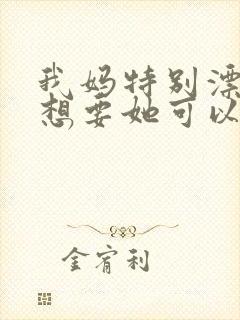 我妈特别漂
想要她可以
金宥利